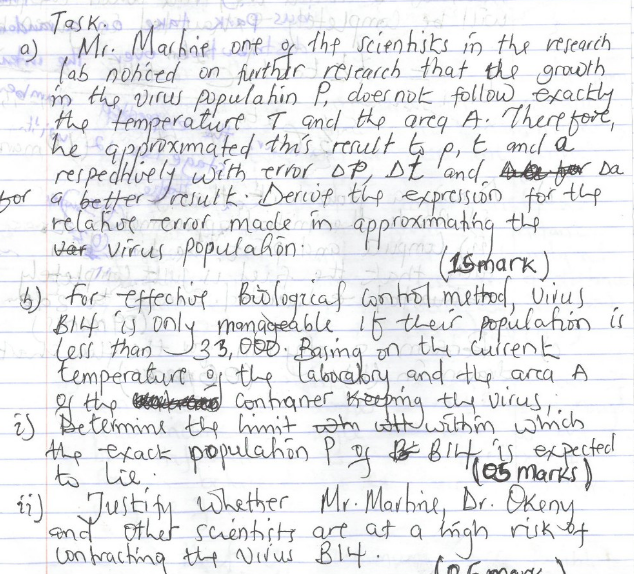 Task.
a) Mr. Martine one of the scientists in the research
lab noticed on further research that the growth
in the virus population P, does not follow exactly
the temperature T and the area A. Therefore,
he approximated this result to p, t and a
respectively with error ΔP, Δt and Δa
for a better result. Derive the expression for the
relative error made in approximating the
virus population.
(15mark)
b) For effective Biological control method, virus
B14 is only manageable if their population is
less than 33,000. Basing on the current
temperature of the laboratory and the area A
of the container keeping the virus;
i) Determine the limit within which
the exact population P of B14 is expected
to lie. (05 marks)
ii) Justify whether Mr. Martine, Dr. Okeny
and other scientists are at a high risk of
contracting the virus B14.